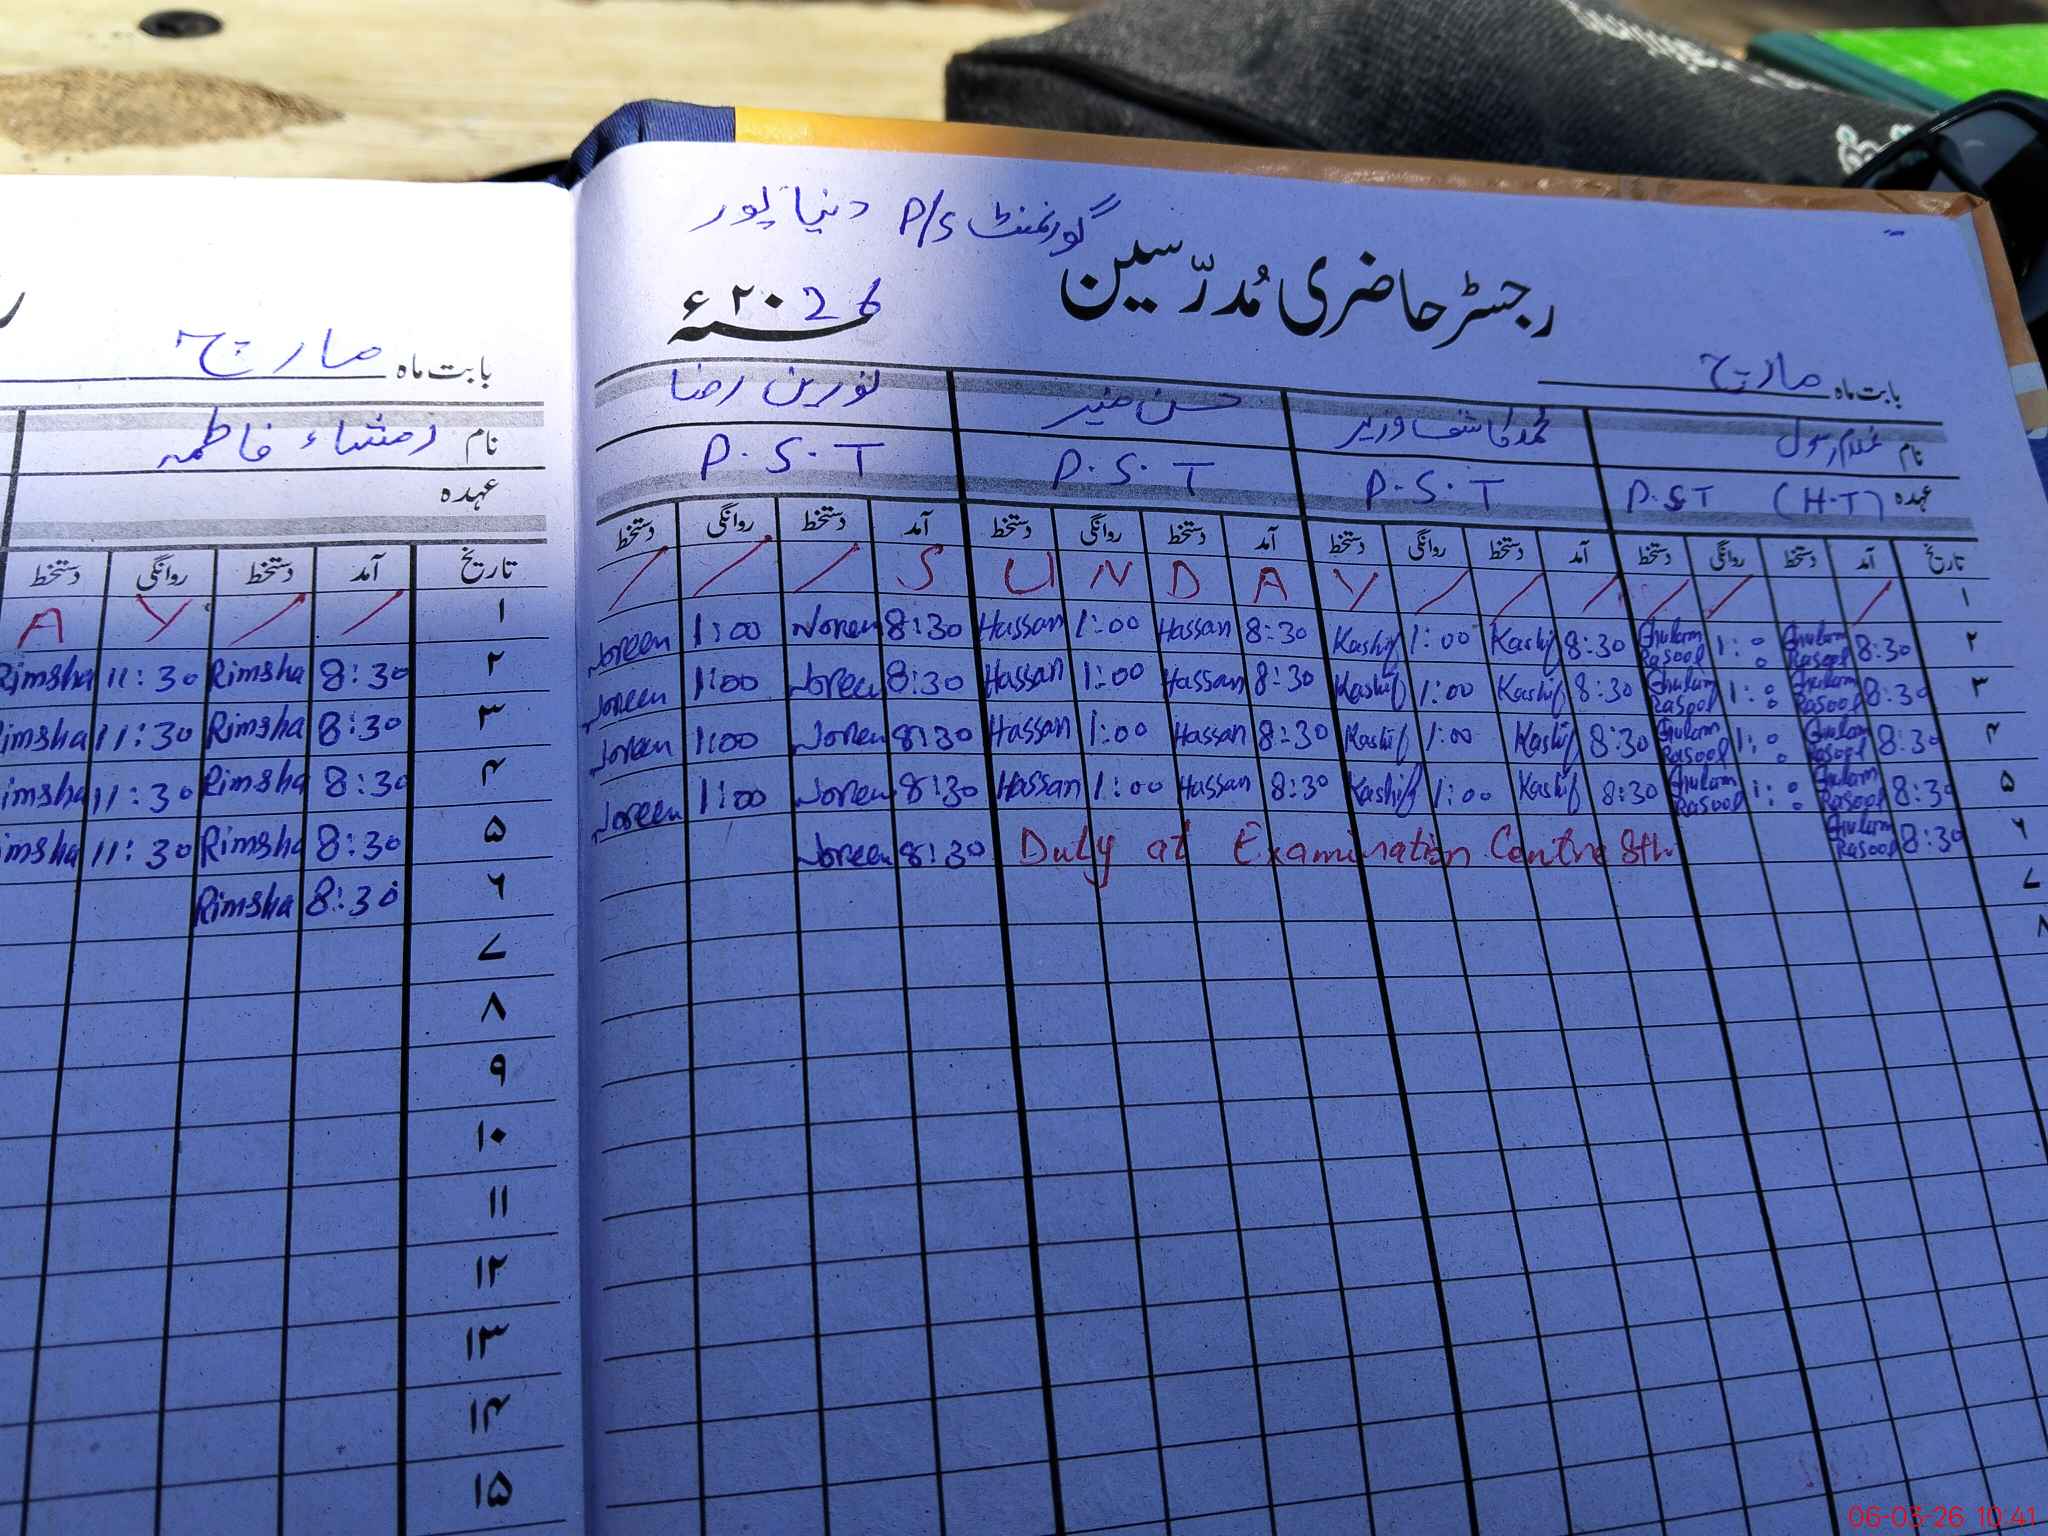 گورنمنٹ P/S دنیا پور
رجسٹر حاضری مُدرّسین
۲۰26ء
بابت ماہ مارچ
نام غلام رسول محمد کاشف وزیر حسن منیر نورین رضا
عہدہ P.S.T (H.T) P.S.T P.S.T P.S.T
تاریخ آمد دستخط روانگی دستخط آمد دستخط روانگی دستخط آمد دستخط روانگی دستخط آمد دستخط روانگی دستخط
۱ / / / / / / Y A D N U S / / /
۲ 8:30 Ghulam Rasool 1:00 Ghulam Rasool 8:30 Kashif 1:00 Kashif 8:30 Hassan 1:00 Hassan 8:30 Noreen 1:00 Noreen
۳ 8:30 Ghulam Rasool 1:00 Ghulam Rasool 8:30 Kashif 1:00 Kashif 8:30 Hassan 1:00 Hassan 8:30 Noreen 1:00 Noreen
۴ 8:30 Ghulam Rasool 1:00 Ghulam Rasool 8:30 Kashif 1:00 Kashif 8:30 Hassan 1:00 Hassan 8:30 Noreen 1:00 Noreen
۵ 8:30 Ghulam Rasool 1:00 Ghulam Rasool 8:30 Kashif 1:00 Kashif 8:30 Hassan 1:00 Hassan 8:30 Noreen 1:00 Noreen
۶ 8:30 Ghulam Rasool Duty at Examination Centre 8th 8:30 Noreen
۷
۸
بابت ماہ مارچ
نام رمشاء فاطمہ
عہدہ
تاریخ آمد دستخط روانگی دستخط
۱ / / Y A
۲ 8:30 Rimsha 11:30 Rimsha
۳ 8:30 Rimsha 11:30 Rimsha
۴ 8:30 Rimsha 11:30 Rimsha
۵ 8:30 Rimsha 11:30 Rimsha
۶ 8:30 Rimsha
۷
۸
۹
۱۰
۱۱
۱۲
۱۳
۱۴
۱۵
06-03-26 10:41